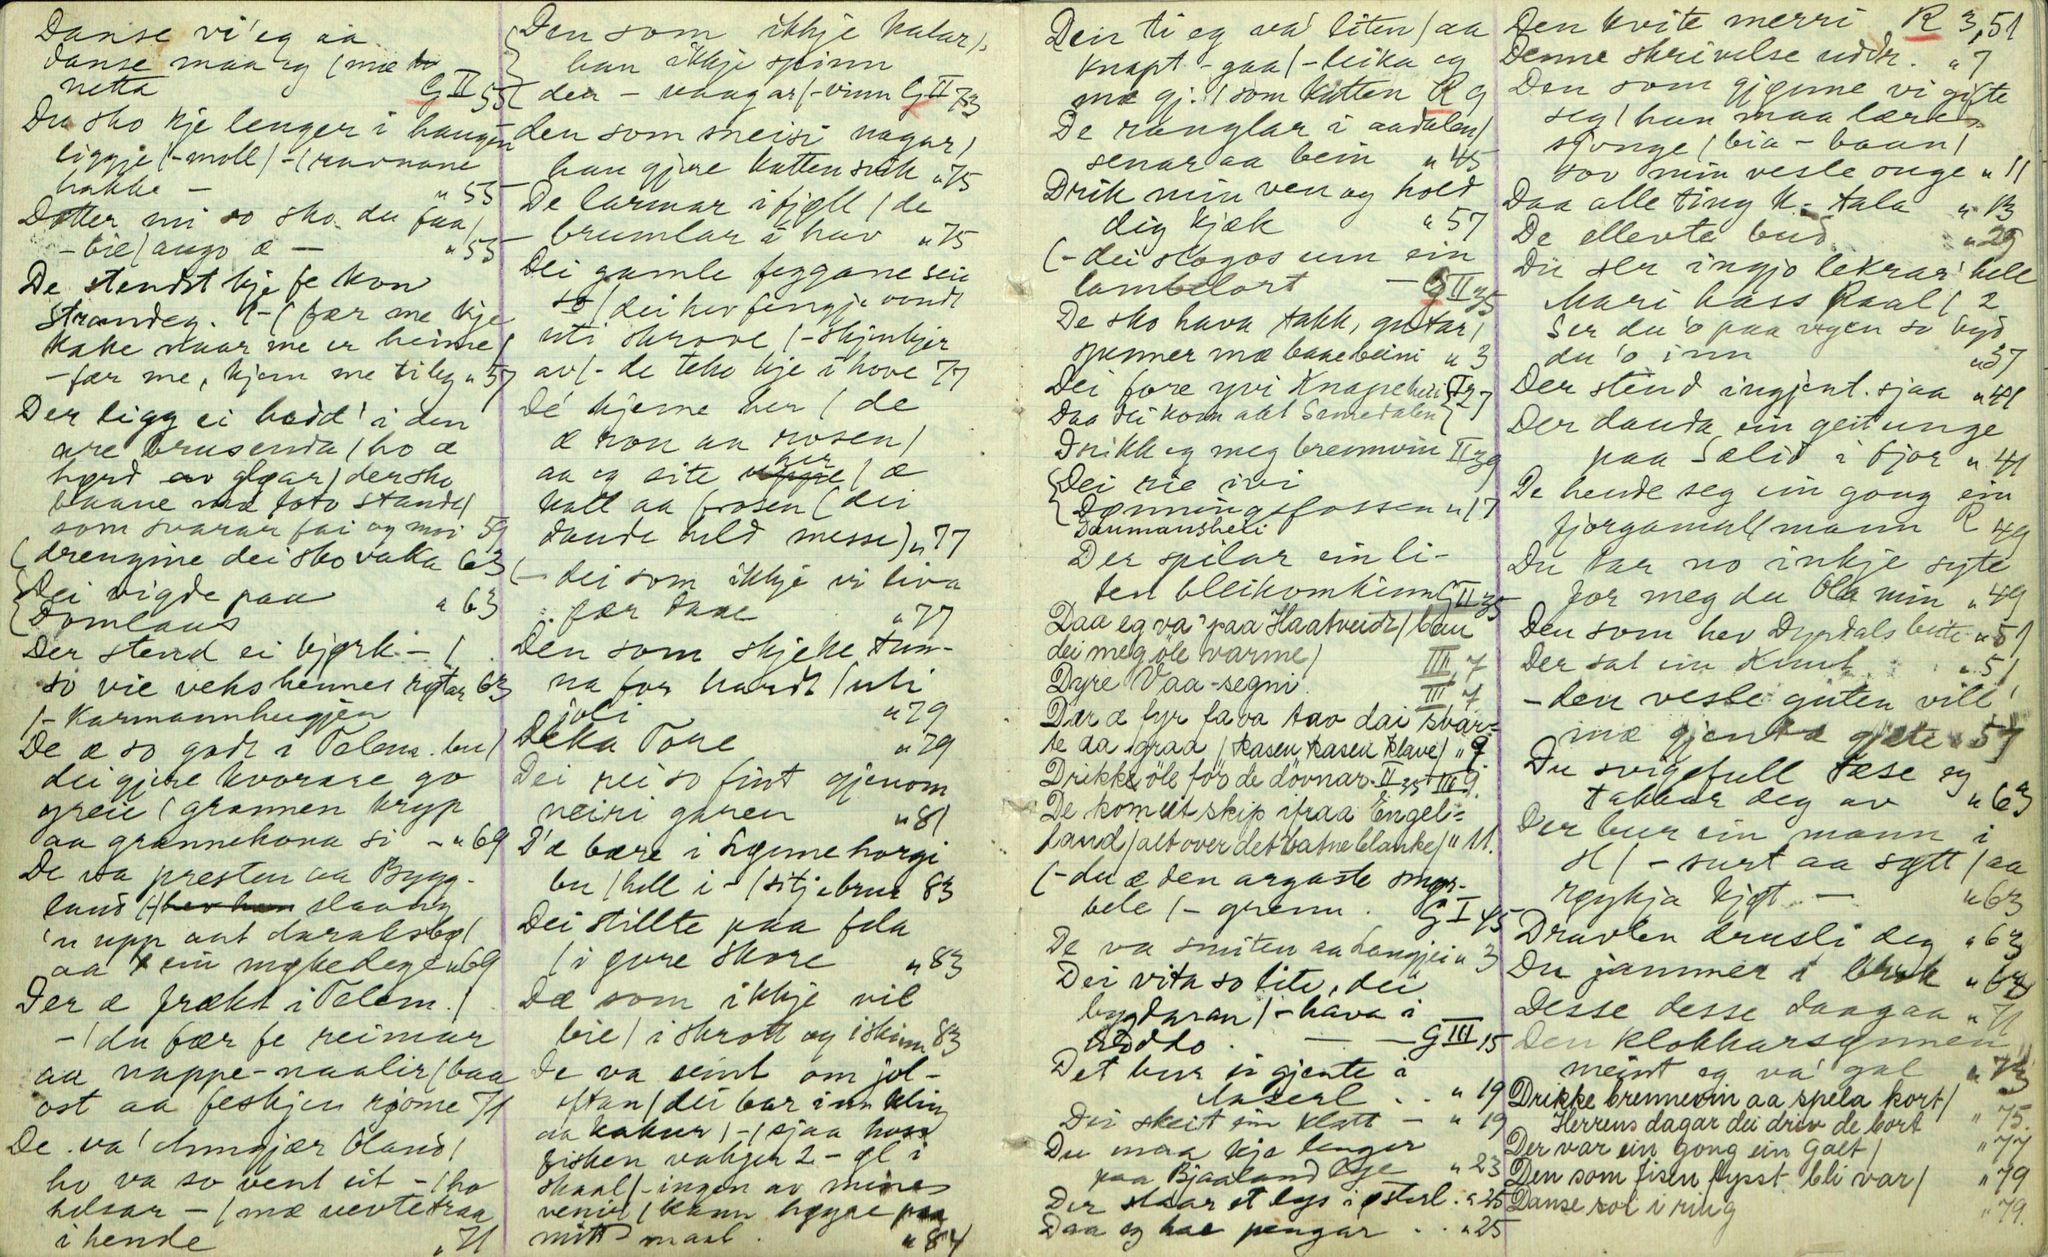 Danse vi' eg aa
danse maa eg (mæ
netta G II 55
Du sko kje lenger i haugen
liggje (-moll) - (ravnane
hakke - " 55
Dotter mi so sko du faa/
-bie/augo æ - " 55
De stendst kje fe kon
strandeg. (-( fær me kje
kake naar me er heime/
-fær me, kjem me til eg " 57
Der ligg ei i den
are brusenda / ho æ
av gloar / der sko
baane mæ foto stande/
som svarar fai og moi 59
(drengine dei sko vaka 63
Dei vigde paa
Domlaus " 63
Der stend ei bjørk - /
so vie veks hennes røtar 63
/- Karmannhugjen
De æ so godt i Telem. bu/
dei gjere kvorare go
greie / grannen kryp
aa grannekona si - " 69
De va presten aa Bygg-
land (- slaang
'n upp ant
aa ein møkedegje " 69
Der æ frækt i Telem. /
- / du fær fe reimar
aa nappe-naalir / baa
ost aa feskjen rjome 71
De va' Anngjær Oland/
ho va so vent eit - / ho
helsar - / mæ vevtetraa
i hende " 71
Den som ikkje kalar/
han ikkje spinn
den - vaagar /-vinn G II 73
den som sneisi nagar/
han gjere katten svik " 75
De larmar i fjøll / de
brumlar i hav " 75
Dei gamle feggane seie
so / dei hev fengje vondt
uti skrove / - skjenkjer
av /- de teke kje i hove 77
De' kjeme her / de
æ ron aa rosen/
aa eg site her / æ
kall aa frosen (dei
daude held messe) " 77
(- dei som ikkje vi liva
fær daue " 77
Den som skjeke tun-
na for hardt / uti
joli " 79
Deka Tore " 79
Dei rei so fint gjenom
neiri garen " 81
D'æ bære i Lømehorgi
bu / hell i - / sitje brur 83
Dei stillte paa fela
/ i gvre skore " 83
Dæ som ikkje vil
bie / i skrott og i skinn 83
De va seint om jol-
eftan / dei bar inn kling
aa kakur / - / sjaa hoss
fisken vakjer 2 - øl i
skaal / - ingen av mine
venir / kann høyre paa
mitt maal. " 84
Den ti eg va' liten / aa
knapt - gaa / - leika eg
mæ gj. / som katten R 9
De ranglar i aadalen/
senar aa bein " 45
Drik min ven og hold
dig kjæk " 57
(- dei slogos um ein
lambelort - G II 35
De sko hava takk, gutar/
spenner mæ baae beini " 3
Dei fore yvi Knapeheii II 27
Daa dei kom aat Semedalen
Drikk eg meg brennvin II 39
Dei rie ivi
Dønningsfossen " 17
Daumansheii
Der spilar ein li-
ten bleikomkinn G II 35
Daa eg va' paa Haatveidt / bau
dei meg öle varme/ III, 7
Dyre Vaa-segni. III 7
Dær æ fyr fava tao dai svar-
te aa graa / kasen kasen klave/ " 9
Drikke öle för de dövnar. II 35 III 9.
De kom eit skip ifraa Engel-
land / alt over det vatne blanke/ " 11.
(- du æ den argaste smør-
bele / - grenn. G I 45
De va smiten aa Langjei " 3
Dei vita so lite, dei
bygdaran / - hava i
hoddo. - - G III 15
Det bur ei gjente i
Aaserl . . " 19
Dei skeit ein klatt - " 19
Du maa kje lenger
paa Bjaaland lye " 23
Der staar et lys i østerl. " 25
Daa eg hae pengar . . " 25
Den kvite merri R 3,51
Denne skrivelse uddr. " 7
Den som gjenne vi gifte
seg / han maa lære
sjonge / bia - baan/
sov min vesle onge " 11
Daa alle ting k. tala " 13
De ellevte bud " 29
Du ser ingjo lekrar' hell
Mari hass Paal / 2
Ser du 'o paa vegen so byd
du 'o inn " 37
Der stend ingjent. sjaa " 41
Der dauda ein geitunge
paa Sælid i fjor " 41
De hende seg ein gong ein
fjorgamall mann R 49
Du tar no inkje syte
for meg du Ola min " 49
Den som hev Dyrdals beite " 51
Der sat ein Knut " 51
- den vesle guten vill'
mæ gjenta gjete " 57
Du svigefull tæse eg
takkar deg av " 63
Der bur ein mann i
H / - surt aa sytt / aa
røykja kjøt - " 63
Dravlen drusli deg " 63
Du jammer i brok "
Desse desse daagaa " 71
Den klokkarsguunen
meint eg va' gal " 73
Drikke brennevin aa spela kort/
Herrens dagar dei driv de bort " 75.
Der var ein gong ein Galt/ " 77
Den som fisen fysst bli var/ " 79
Danse rot i ring " 79.